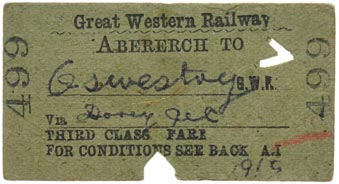 Great Western Railway
ABERERCH TO
Oswestry G.W.R.
Via Dovey Jec
THIRD CLASS FARE
FOR CONDITIONS SEE BACK A.I
19/9
499
499